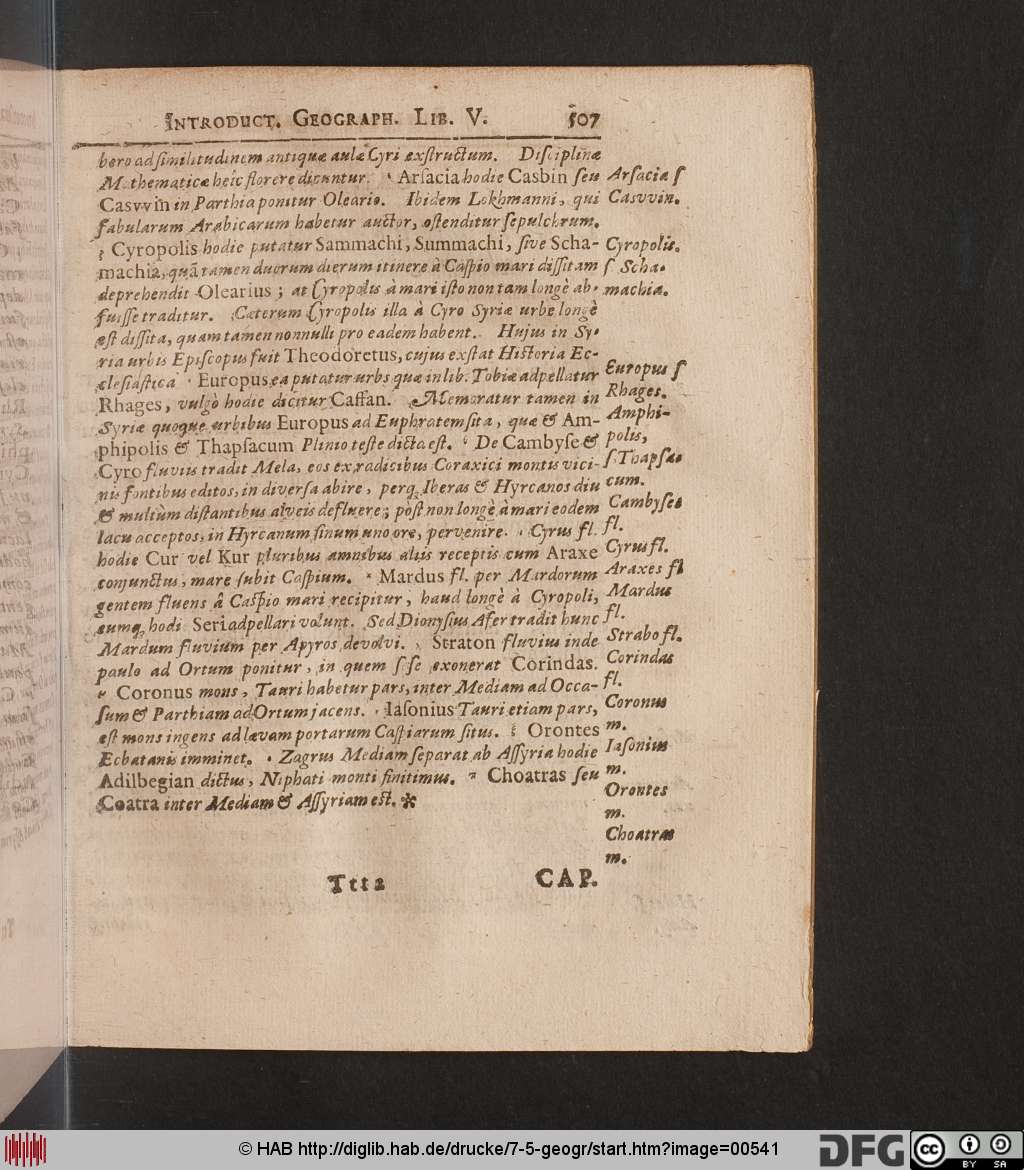 INTRODUCT. GEOGRAPH. LIB. V. 507
bero ad similitudinem antiquæ aulæ Cyri exstructum. Disciplinæ
Mathematicæ heîc florere dicuntur. Arsacia hodie Casbin seu
Casvvin in Parthia ponitur Oleario. Ibidem Lokhmanni, qui
fabularum Arabicarum habetur auctor, ostenditur sepulchrum.
Cyropolis hodie putatur Sammachi, Summachi, sive Scha-
machia, quã tamen duorum dierum itinere à Caspio mari dissitam
deprehendit Olearius; at Cyropolis à mari isto non tam longè ab-
fuisse traditur. Cæterum Cyropolis illa à Cyro Syriæ urbe longè
est dissita, quam tamen nonnulli pro eadem habent. Hujus in Sy-
ria urbis Episcopus fuit Theodoretus, cujus exstat Historia Ec-
clesiastica Europus ea putatur urbs quæ in lib. Tobiæ adpellatur
Rhages, vulgò hodie dicitur Caffan. Memoratur tamen in
Syriæ quoque urbibus Europus ad Euphratem sita, quæ & Am-
phipolis & Thapsacum Plinio teste dicta est. De Cambyse &
Cyro fluviis tradit Mela, eos ex radicibus Coraxici montis vici-
nis fontibus editos, in diversa abire, perq; Iberas & Hyrcanos diu
& multùm distantibus alveis defluere; pòst non longè à mari eodem
lacu acceptos, in Hyrcanum sinum uno ore, pervenire. Cyrus fl.
hodie Cur vel Kur pluribus amnibus aliis receptis cum Araxe
conjunctus, mare subit Caspium. Mardus fl. per Mardorum
gentem fluens â Caspio mari recipitur, haud longè à Cyropoli,
eumq; hodi Seri adpellari volunt. Sed Dionysius Afer tradit hunc
Mardum fluvium per Apyros devolvi. Straton fluvius inde
paulo ad Ortum ponitur, in quem sese exonerat Corindas.
Coronus mons, Tauri habetur pars, inter Mediam ad Occa-
sum & Parthiam ad Ortum jacens. Iasonius Tauri etiam pars,
est mons ingens ad lævam portarum Caspiarum situs. Orontes
Ecbatanis imminet. Zagrus Mediam separat ab Assyria hodie
Adilbegian dictus, Niphati monti finitimus. Choatras seu
Coatra inter Mediam & Assyriam est. *
Arsacia ſ
Casvvin.
Cyropolis.
ſ Scha-
machia.
Europus ſ
Rhages.
Amphi-
polis,
ſ Thapsa-
cum.
Cambyses
fl.
Cyrus fl.
Araxes fl
Mardus
fl.
Strabo fl.
Corindas
fl.
Coronus
m.
Iasonius
m.
Orontes
m.
Choatras
m.
Ttt2 CAP.
© HAB http://diglib.hab.de/drucke/7-5-geogr/start.htm?image=00541
DFG cc BY SA